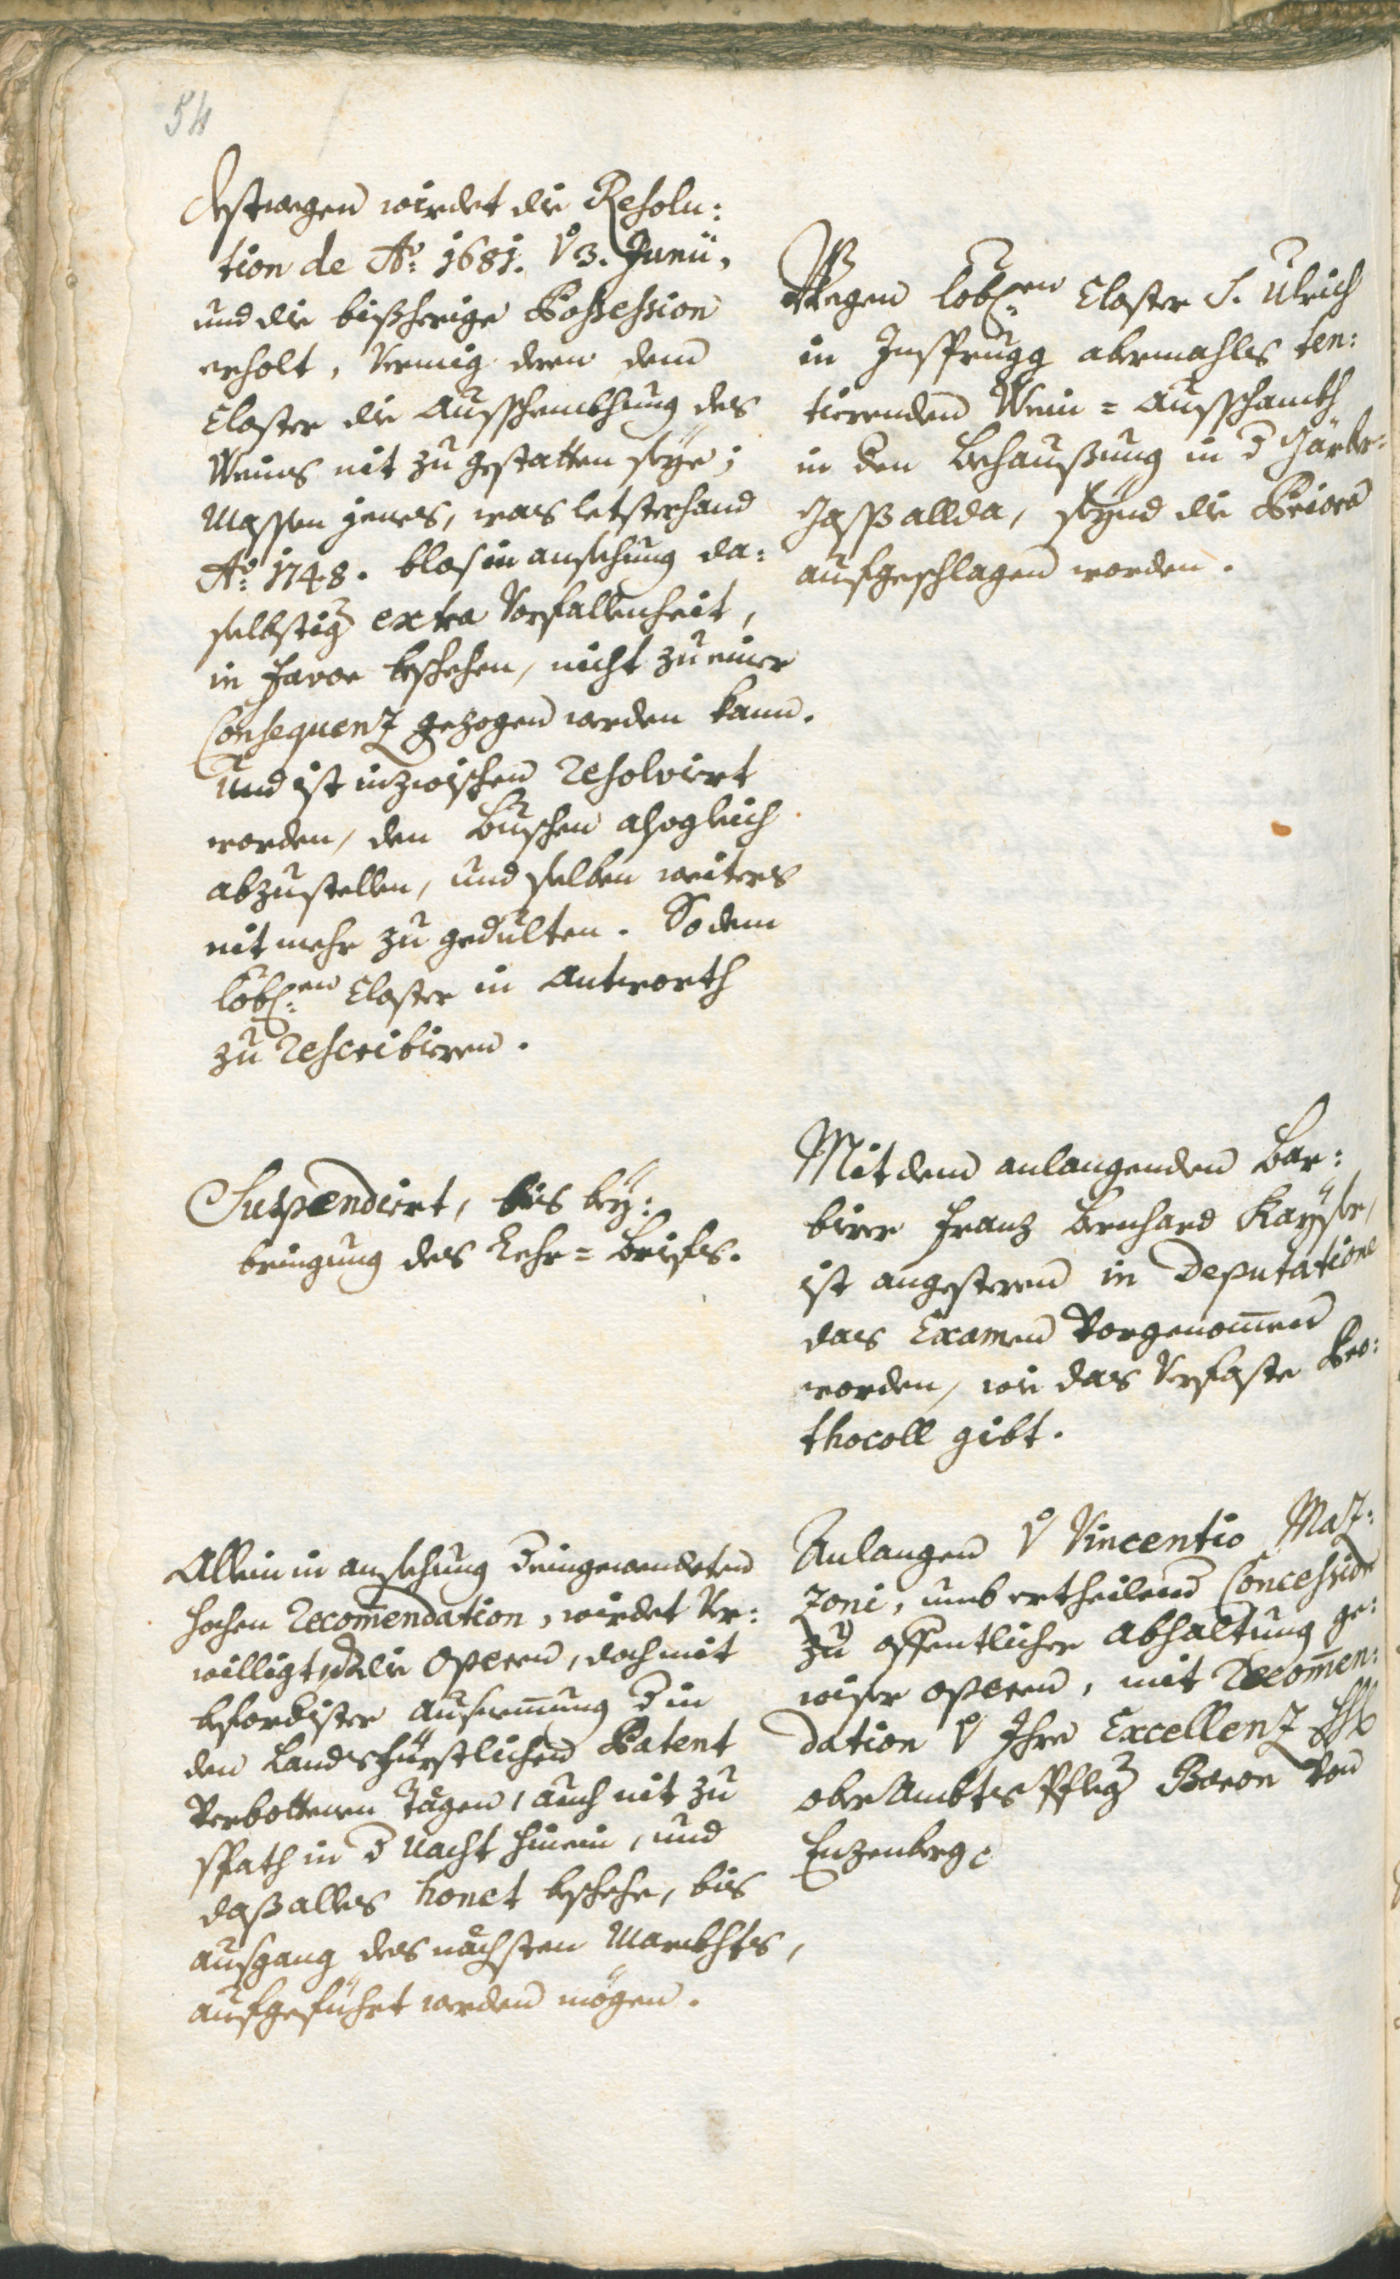 54
destwegen wirdet die Resolu:
tion de Aõ: 1681. V̊ 3. Junii,
und die bißherige Possession
erholt, vermig deren dem
Closter die Ausschenkhung des
Weins nit zu gestatten seÿe;
Massen jenes, was letsterhand
Aõ: 1748. blos in ansehung da:
selbstig extra Vorfallenheit,
in favor beschehen, nicht zu einer
Consequenz gezogen werden kann.
Und ist inzwischen resolviert
worden, den Buschen alsogleich
abzustellen, und selben weiters
nit mehr zu gedulten. So dem
Löbl:en Closter in Antworth
zu rescribieren.
Wegen Löbl:en Closter S. Ulrich
in Insprugg abermahls ten:
tierenden Wein=Ausschankh
in den Behaußung in d Gärber:
gass allda, seÿnd die Priora
aufgeschlagen worden.
Suspendiert, bis beÿ:
bringung des Lehr=Briefs.
Mit dem anlangenden Bar:
bierer Franz Bernhard Kaÿser,
ist angesteren in Deputatione
das Examen vorgenom̃en
worden, wie das verfaste Pro:
thocoll gibt.
Allein in ansehung d eingewendeten
hochen Recom̃endation, wirdet ver:
williget, die Operen, doch mit
ausnem̃ung d in
den Landsfürstlichen Patent
verbottenen Tägen, auch nit zu
spath in d Nacht hinein, und
daß alles honet beschehe, bis
ausgang des nächsten Markhts,
aufgeführt werden mögen.
Anlangen V̊ Vincentio Maz:
zoni, umb ertheilend Concession
zu offentlicher abhaltung ge:
wiser operen, mit Recom̃en:
dation V̊ Ihre Excellenz H
ober Ambts Pfleg Baron von
Enzenberg.